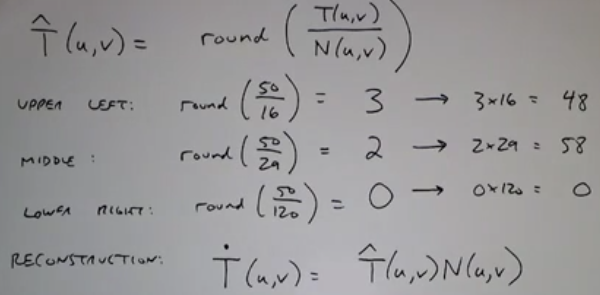 T̂(u,v) = round ( T(u,v) / N(u,v) )
UPPER LEFT: round (50/16) = 3 → 3×16 = 48
MIDDLE: round (50/29) = 2 → 2×29 = 58
LOWER RIGHT: round (50/120) = 0 → 0×120 = 0
RECONSTRUCTION: Ṫ(u,v) = T̂(u,v)N(u,v)